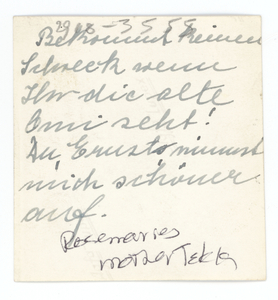 Bekommt keinen
Schreck wenn
Ihr die alte
Omi seht!
Du, Ernsto nimmst
mich schöner
auf.
Rosemaries
mother Tekla